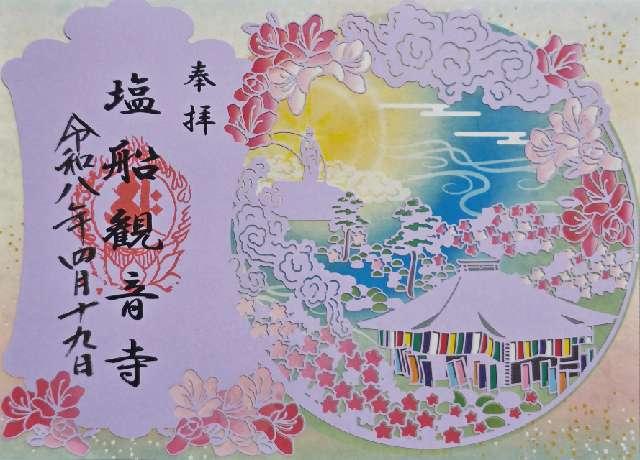 奉拝
塩船観音寺
令和八年四月十九日